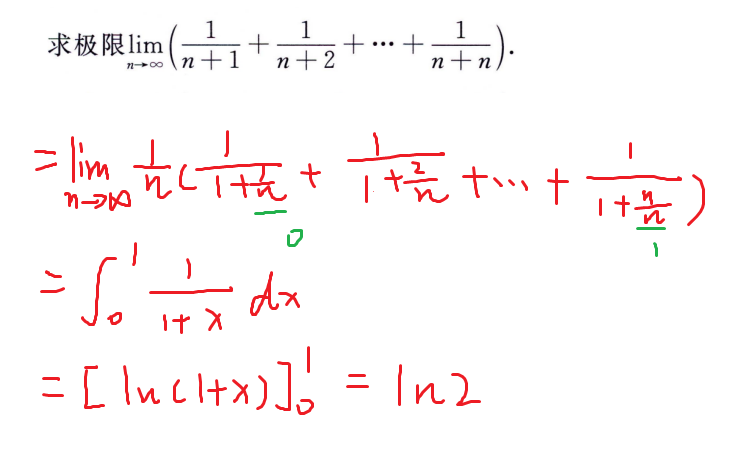 求极限lim_{n→∞}(1/(n+1) + 1/(n+2) + ⋯ + 1/(n+n)).
= lim_{n→∞} 1/n (1/(1+1/n) + 1/(1+2/n) + ⋯ + 1/(1+n/n))
0 1
= ∫_0^1 1/(1+x) dx
= [ln(1+x)]_0^1 = ln2